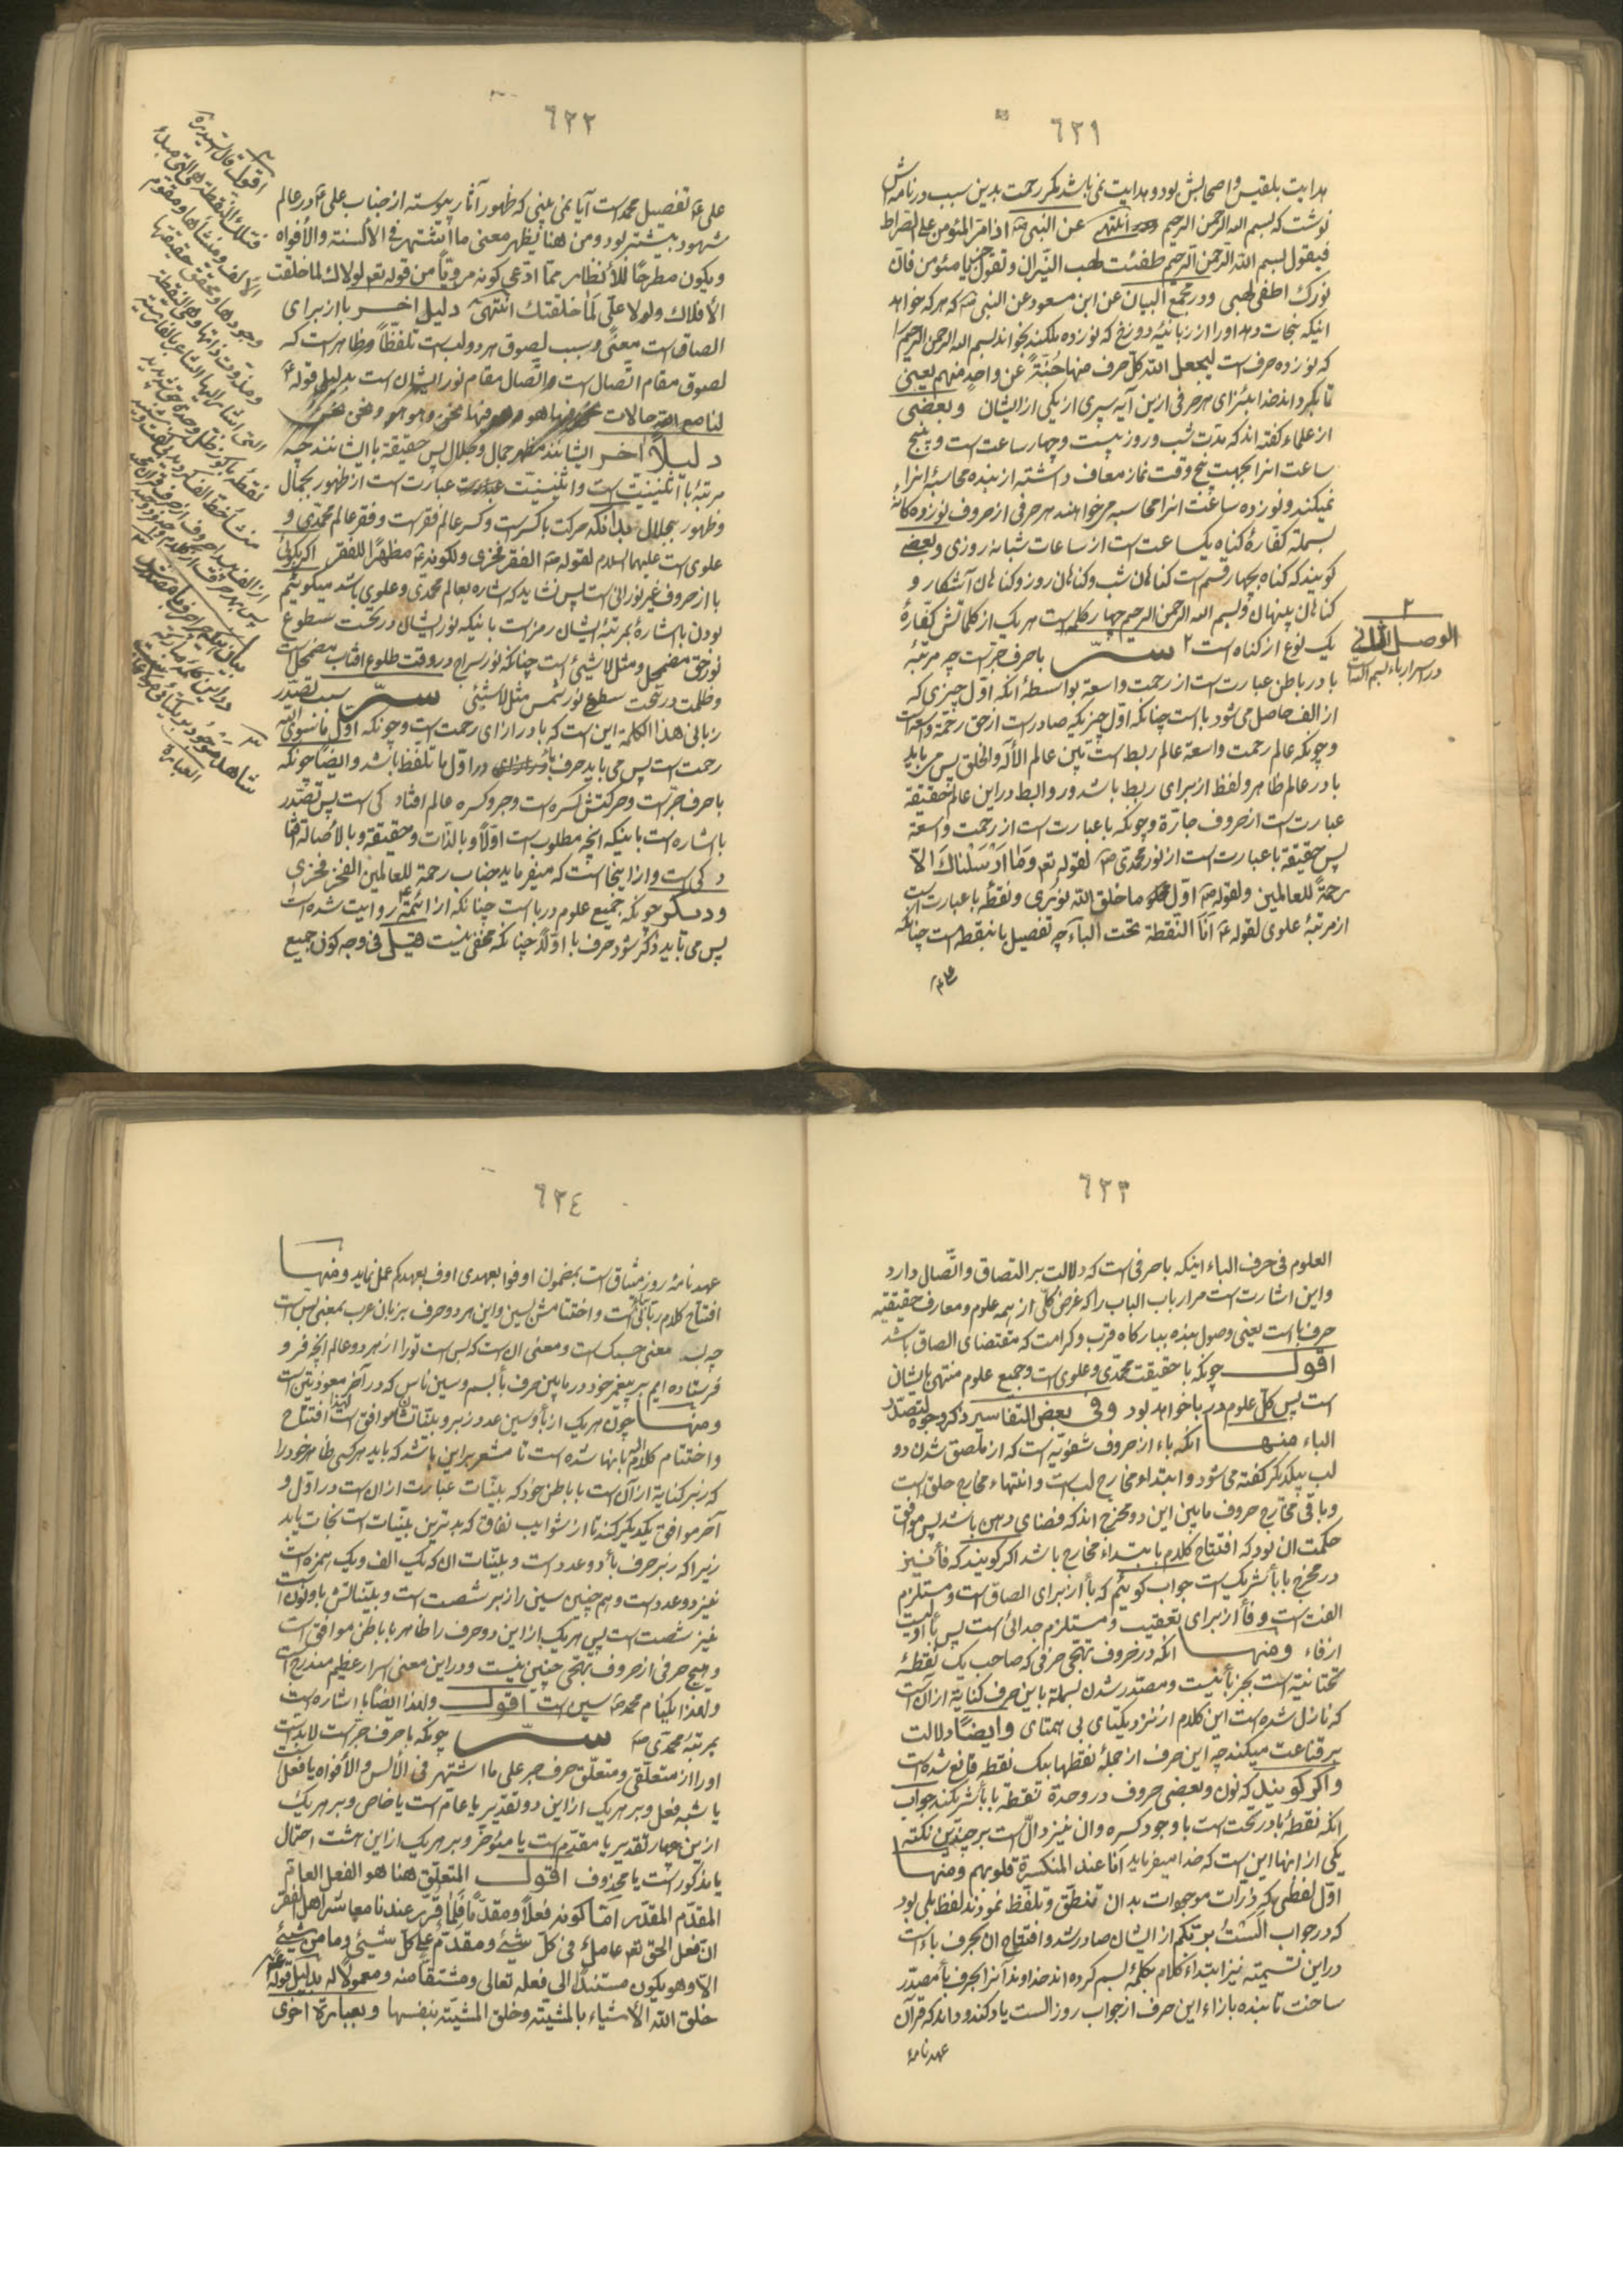 ٦٣١
هدایت بلقیس و اصحابش بود و هدایت نمی باشد مگر رحمت بدین سبب در نامه اش
نوشت که بسم الله الرحمن الرحیم انتهی عن النبی ص اذا مر المؤمن علی الصراط
فیقول بسم الله الرحمن الرحیم طفئت لهب النیران و تقول جز یا مئومن فان
نورک اطفی لهبی و در مجمع البیان عن ابن مسعود عن النبی ص که هر که خواهد
اینکه نجات دهد او را از زبانیه دوزخ که نوزده ملکند بخواند بسم الله الرحمن الرحیم را
که نوزده حرف است لیجعل الله کل حرف منها جُنّةً عن واحدٍ منهم یعنی
تا بگرداند خدا بئزای هر حرفی ازین آیه سپری از یکی از ایشان و بعضی
از علماء گفته اند که مدت شب و روز بیست و چهار ساعت است و پنج
ساعت انرا بجهت پنج وقت نماز معاف داشته از بنده محاسبه انرا
نمیکند و نوزده ساعت انرا محاسبه میخواهند هر حرفی از حروف نوزده کانه
بسمله کفاره کناه یکساعت است از ساعات شبانه روزی و بعضی
کویند که کناه بچهار قسم است کناهان شب و کناهان روز و کناهان آشکار و
کناهان پنهان و بسم الله الرحمن الرحیم چهار کلمه است هر یک از کلماتش کفارهٔ
یک نوع از کناه است ٢ سرّ با حرف جر است چه مرتبهٔ
با در باطن عبارت است از رحمت واسعة بواسطهٔ انکه اوّل چیزی که
از الف حاصل می شود با است چنانکه اوّل چیزیکه صادر است از حق رحمة واسعه است
و چونکه عالم رحمت واسعة عالم ربط است بین عالم الآله و الخلق پس می باید
با در عالم ظاهر و لفظ از برای ربط باشد و روابط در این عالم حقیقة
عبارت است از حروف جارّة و چونکه با عبارت است از رحمت واسعة
پس حقیقة با عبارت است از نور محمدی ص لقوله تعه وَمَا اَرْسَلْناکَ اِلاّ
رحمةً للعالمین و لقوله ص اوّل ما خلق الله نوری و نقطهٔ با عبارت است
از مرتبهٔ علوی لقوله ع اَنَا النّقطة تحت الباء چه تفصیل با بنقطه است چنانکه
٢
الوصل الثانی
در اسرار باء بسم الله است
٦٣٢
علی ع تفصیل محمد است آیا نمی بینی که ظهور آثار پیوسته از جناب علی ع در عالم
شهود بیشتر بود و من هنا یظهر معنی ما اشتهر فی الألسنة و الأفواه
و یکون مطرحًا للأنظار مما ادّعی کونه مرویّاً من قوله تعه لولاک لما خلقت
الأفلاک و لولا علیّ لَمَا خلقتک انتهی دلیل اخر با از برای
الصاق است معنًی و سبب لصوق هر دو لب است تلفّظاً و ظاهر است که
لصوق مقام اتّصال است و اتّصال مقام نور ایشان است بدلیل قوله ع
لنا مع الله حالات نحن فیها هو و هو فیها نحن و هو هو و نحن نحن
دلیلاً اخر ایشانند مظهر جمال و جلال پس حقیقة با ایشانند چه
مرتبهٔ با اثنینیّت است و اثنینیّت عبارت است از ظهور بجمال
و ظهور بجلال بدانکه حرکت با کسرست و کسر عالم فقر است و فقر عالم محمّدی و
علوی است علیهما السلام لقوله ص الفقر فخری و لکونه ع مظهرًا للفقر اکر بکوئی
با از حروف غیر نورانی است پس نشاید که اشاره بعالم محمدی و علوی باشد میکوئیم
بودن با اشارهٔ بمرتبهٔ ایشان رمز است باینکه نور ایشان در تحت سطوع
نور حق مضمحل و مثل لاشیئ است چنانکه نور سراج در وقت طلوع افتاب مضمحل است
و ظلمت در تحت سطع نور شمس مثل لاشیئی سرّ سبب تصدّر
ربانی هذا الکلمة این است که با در ازای رحمت است و چونکه اوّل ما سوی الله
رحمت است پس می باید حرف با در اوّل ما تلفظ باشد و ایضًا چونکه
با حرف جرّ است و حرکتش کسره است و جر و کسره عالم افتادگی است پس تصدّر
با اشاره است باینکه انچه مطلوب است اوّلًا و بالذات و حقیقة و بالأصالة افتا
دکی است و از اینجا است که میفرماید جناب رحمة للعالمین الفقر فخری
و دیکر چونکه جمیع علوم در با است چنانکه از ائمّة ع روایت شده است
پس می باید ذکر شود حرف با اوّلاً چنانکه مخفی نیست قیل فی وجه کون جمیع
٦٣٣
العلوم فی حرف الباء اینکه با حرفی است که دلالت بر التصاق و اتّصال دارد
و این اشارت است مر ارباب الباب را که غرض کلّی از همه علوم و معارف حقیقیه
حرف با است یعنی وصول بنده ببارکاه قرب و کرامت که مقتضای الصاق باشد
اقول چونکه با حقیقت محمّدی و علوی است و جمیع علوم منتهی بایشان
است پس کلّ علوم در با خواهد بود و فی بعض التفاسیر ذکر وجوه لتصدّر
الباء منها انکه باء از حروف شفویّه است که از ملصق شدن دو
لب بیکدیکر کفته می شود و ابتداء مخارج لب است و انتهاء مخارج حلق است
و باقی مخارج حروف ما بین این دو مخرج اند که فضای دهن باشد پس موافق
حکمت ان بود که افتتاح کلام بابتداء مخارج باشد اکر کویند که فاء نیز
در مخرج با باء شریک است جواب کوئیم که باء از برای الصاق است و مستلزم
الفت است و فاء از برای تعقیب و مستلزم جدائی است پس باء اولیت
از فاء و منها انکه در حروف تهجّی حرفی که صاحب یک نقطهٔ
تحتانیّه است بجز باء نیست و مصدّر شدن بسمله باین حرف کنایة از ان است
که نازل شده است این کلام از نزد یکتای بی همتای و ایضًا دلالت
بر قناعت میکند چه این حرف از جملهٔ نقطها بیک نقطه قانع شده است
و اکر کویند که نون و بعضی حروف در وحدة نقطه با باء شریکند جواب
انکه نقطهٔ با در تحت است با وجود کسره و ان نیز دالّ است بر چندین نکته
یکی از انها این است که خدا میفرماید اَنَا عند المنکسرة قلوبهم و منها
اوّل لفظی که ذرّات موجوات بدان تنطّق و تلفّظ نمودند لفظ بلی بود
که در جواب اَلَستُ بربّکم از ایشان صادر شد و افتتاح ان بحرف باء است
در این تسمیّه نیز ابتداء کلام بکلمهٔ بسم کرده اند خداوند آنرا بحرف باء مصدّر
ساخت تا بنده بازاء این حرف از جواب روز الست یاد کند و داند که قرآن
عهد نامهٔ
٦٣٤
عهد نامهٔ روز میثاق است بمضمون اوفوا بعهدی اوف بعهدکم عمل نماید و منها
افتتاح کلام ربّانی بباء است و اختتامش بسین و این هر دو حرف بزبان عرب بمعنی بس است
چه بس معنی حسبک است و معنی ان است که بس است تو را از هر دو عالم انچه فرو
فرستاده ایم بر پیغمبر خود در ما بین حرف باء بسم و سین ناس که در آخر معوذتین است
و منها چون هر یک از باء و سین عدد زبر و بیّناتشان موافق است لهذا افتتاح
و اختتام کلام الله بانها شده است تا مشعر بر این باشد که باید هر کسی ظاهر خود را
که زبر کنایة از آن است با باطن خود که بیّنات عبارت از ان است در اوّل و
آخر موافق یکدیکر کنند تا از شوایب نفاق که بدترین بلیّات است نجات یابد
زیرا که زبر حرف باء دو عدد است و بیّنات ان که یک الف و یک همزه است
نیز دو عدد است و هم چنین سین را زبر شصت است و بیّناتش یا و نون است
نیز شصت است پس هر یک از این دو حرف را ظاهر با باطن موافق است
و هیچ حرفی از حروف تهجّی چنین نیست و در این معنی اسرار عظیم مندرج است
و لهذا یکنام محمد ص سین است اقول و لهذا ایضًا با اشاره است
بمرتبهٔ محمّدی ص سرّ چونکه با حرف جرّ است لابدّ است
او را از متعلّقی و متعلّق حرف جر علی ما اشتهر فی الألسن و الأفواه یا فعل است
یا شبه فعل و بر هر یک از این دو تقدیر یا عام است یا خاص و بر هر یک
ازین چهار تقدیر یا مقدّم است یا مئوخّر و بر هر یک از این هشت احتمال
یا مذکور است یا محذوف اقول المتعلّق هنا هو الفعل العامّ
المقدّم المقدّر امّا کونه فعلاً و مقدّماً فَلِمَا قُرّر عندنا معاشر اهل الفقر
انّ فعل الحق تعه عاملٌ فی کلّ شیئ و مقدّم علی کلّ شیئی و ما من شیئ
الاّ و هو یکون مستندًا الی فعله تعالی و مشتقّا منه و معمولًا له بدلیل قوله ع
خلق الله الأشیاء بالمشیّة و خلق المشیّة بنفسها و بعبارة اخری